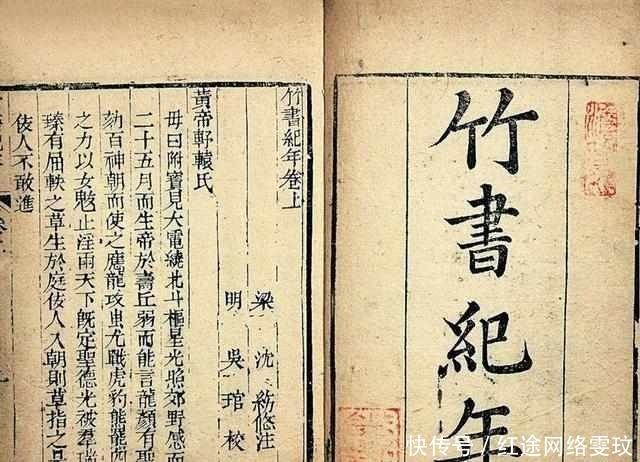 竹書紀年
竹書紀年卷上
梁 沈約附注
明 吳琯校
黃帝軒轅氏
母曰附寶見大電繞北斗樞星光照郊野感而
二十五月而生帝於壽丘弱而能言龍顏有聖
劾百神朝而使之應龍攻蚩尤戰虎豹熊羆
之力以女魃止淫雨天下既定聖德光被羣瑞
臻有屈軼之草生於庭佞人入朝則草指之是
佞人不敢進
快传号 / 红途网络雯玟